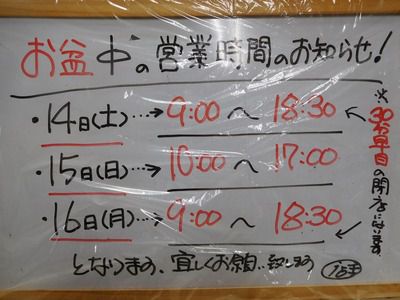 お盆中の営業時間のお知らせ!
・14日(土)…→ 9:00〜18:30
・15日(日)…→ 10:00〜17:00
・16日(月)…→ 9:00〜18:30
※30分早目の閉店になります
となります、宜しくお願い致します